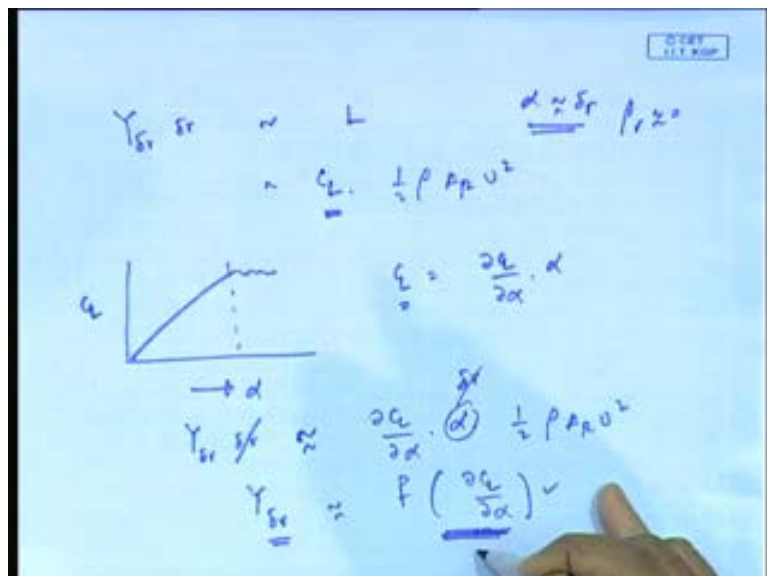 © CET
I.I.T. KGP
Y_δr δr ~ L α ≈ δr β_r ≈ 0
~ C_L. ½ ρ A_R U²
C_L = ∂C_L/∂α . α
C_L
→ α
δr
Y_δr δr ≈ ∂C_L/∂α . α ½ ρ A_R U²
Y_δr ≈ f (∂C_L/∂α) ✓